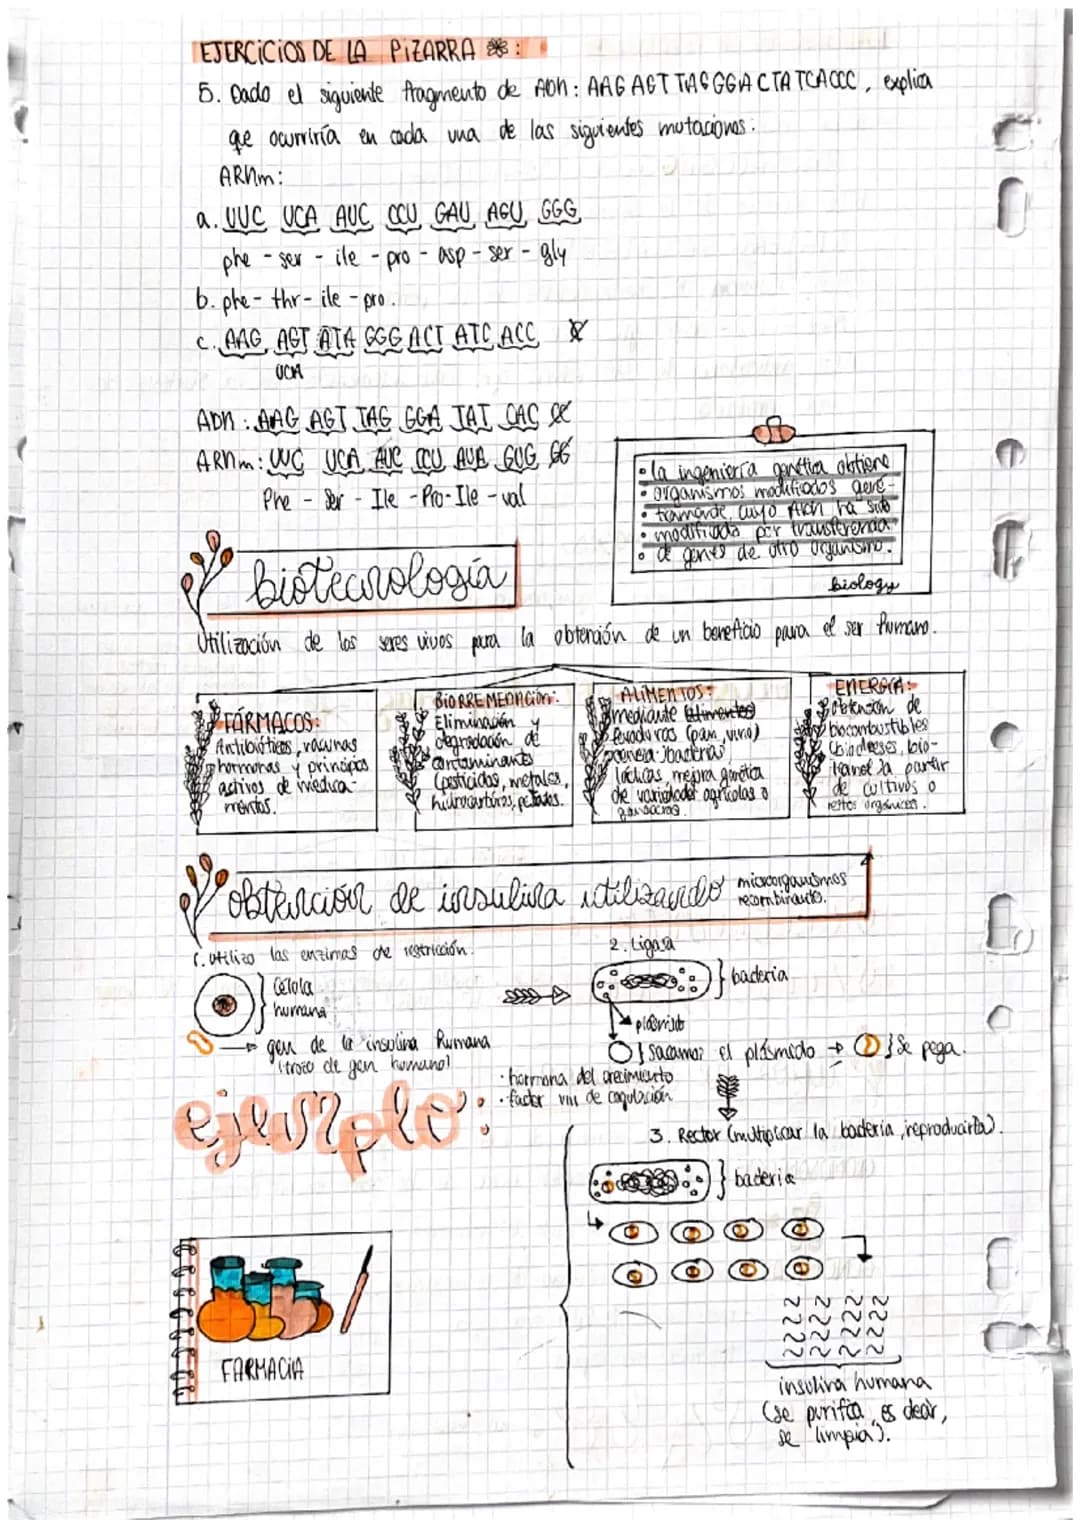 EJERCICIOS DE LA PIZARRA :
5. Dado el siguiente fragmento de ADN: AAG AGT TAG GGA CTA TCA CCC, explica
que ocurriría en cada una de las siguientes mutaciones:
ARNm:
a. UUC UCA AUC CCU GAU AGU GGG
phe - ser - ile - pro - asp - ser - gly
b. phe - thr - ile - pro.
c. AAG AGT ATA GGG ACT ATC ACC
UCA
ADN: AAG AGT TAG GGA TAT CAC
ARNm: UUC UCA AUC CCU AUA GUG GG
Phe - Ser - Ile - Pro - Ile - val
• la ingeniería genética obtiene
• organismos modificados gené-
• ticamente, cuyo ADN ha sido
• modificado por transferencia
• de genes de otro organismo.
biology
biotecnología
Utilización de los seres vivos para la obtención de un beneficio para el ser humano.
FÁRMACOS:
Antibióticos, vacunas
hormonas y principios
activos de medica-
mentos.
BIORREMEDIACIÓN:
Eliminación y
degradación de
contaminantes
(pesticidas, metales,
hidrocarburos, pesados.
ALIMENTOS:
mediante
levaduras (pan, vino)
cerveza bacterias
lácticas, mejora genética
de variedades agrícolas o
ganaderas.
ENERGÍA:
obtención de
biocombustibles
(biodieses, bio-
tanol) a partir
de cultivos o
restos orgánicos.
obtención de insulina utilizando microorganismos
recombinante.
1. utilizo las enzimas de restricción.
Célula
humana
gen de la insulina humana
(trozo de gen humano)
2. Ligasa
bacteria
plásmido
Sacamos el plásmido → Se pega.
ejemplo:
• hormona del crecimiento
• factor VIII de coagulación
3. Rector (multiplicar la bacteria, reproducirla).
bacteria
insulina humana
(se purifica, es decir,
se "limpia").
FARMACIA